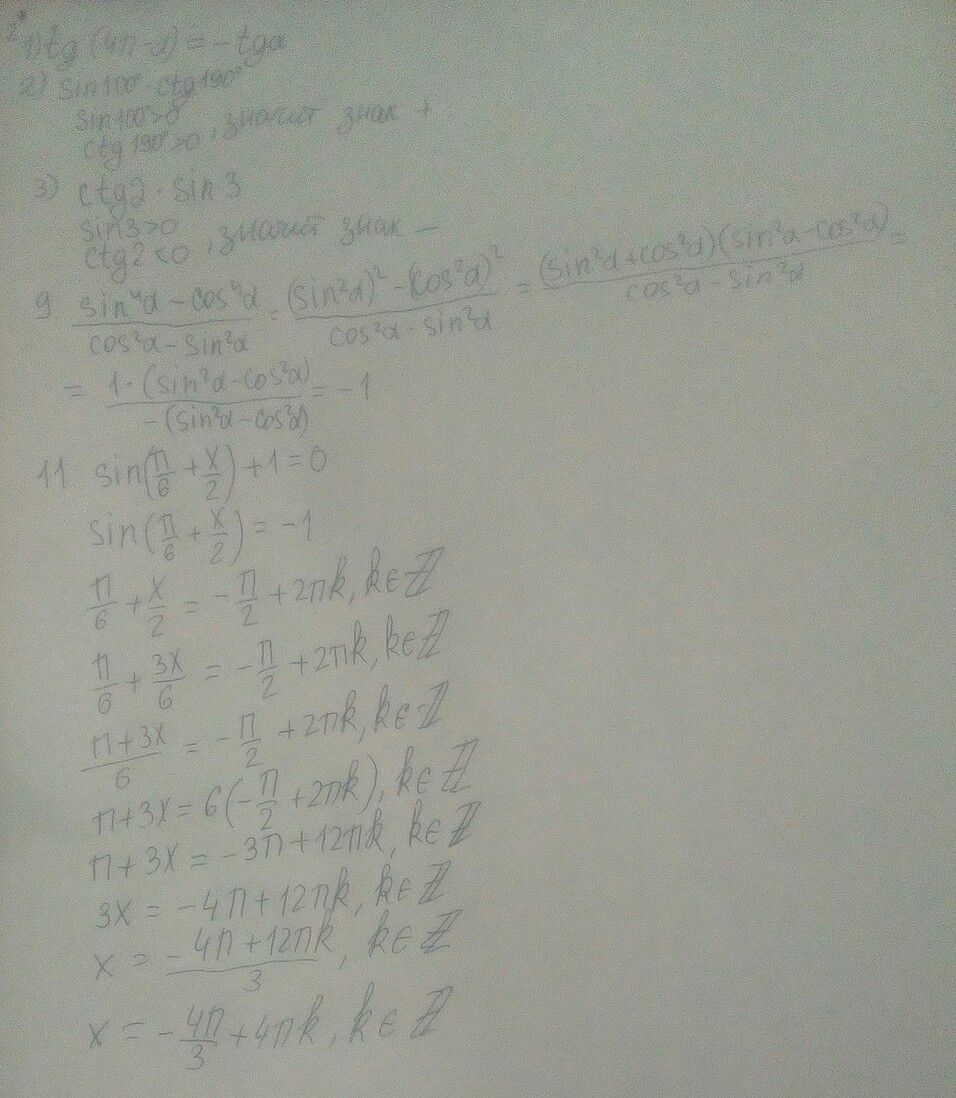 2*
1) tg (4π-α) = -tgα
2) sin100° · ctg190°
sin100°>0
ctg190°>0 , значит знак +
3) ctg2 · sin3
sin3>0
ctg2<0 , значит знак -
9. (sin⁴α - cos⁴α)/(cos²α - sin²α) = ((sin²α)² - (cos²α)²)/(cos²α - sin²α) = ((sin²α+cos²α)(sin²α-cos²α))/(cos²α - sin²α) =
= (1·(sin²α-cos²α))/(-(sin²α-cos²α)) = -1
11. sin(π/6 + x/2) + 1 = 0
sin(π/6 + x/2) = -1
π/6 + x/2 = -π/2 + 2πk, k∈ℤ
π/6 + 3x/6 = -π/2 + 2πk, k∈ℤ
(π+3x)/6 = -π/2 + 2πk, k∈ℤ
π+3x = 6(-π/2 + 2πk), k∈ℤ
π+3x = -3π+12πk, k∈ℤ
3x = -4π+12πk, k∈ℤ
x = (-4π+12πk)/3, k∈ℤ
x = -4π/3 + 4πk, k∈ℤ